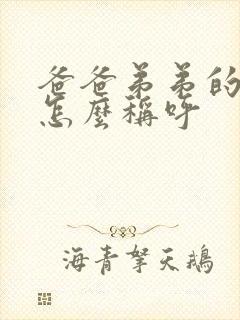 爸爸弟弟的
怎麼稱呼
海青拏天鵝